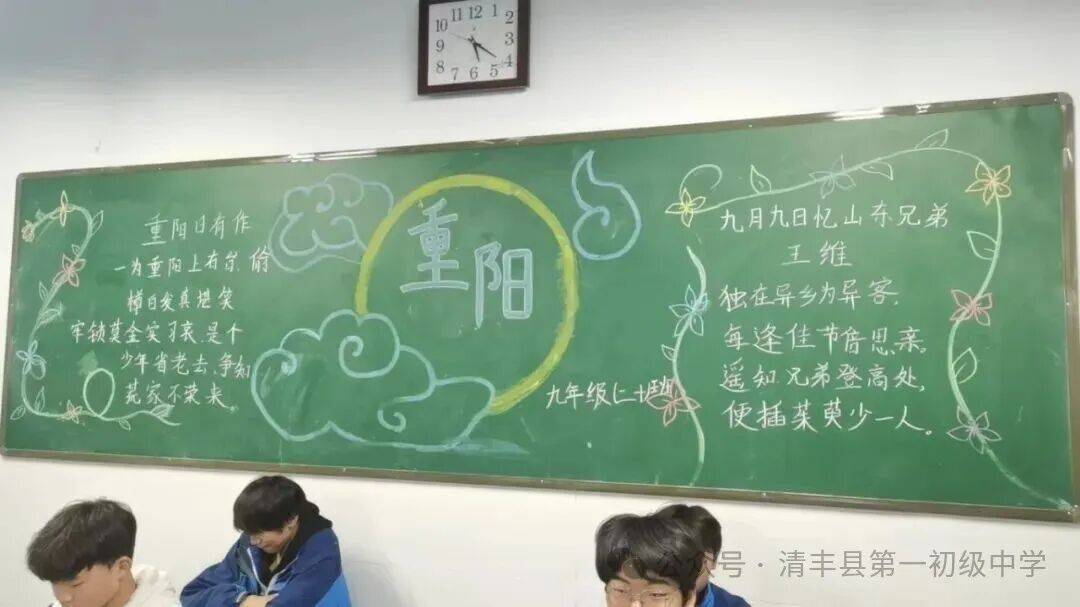 12 1 2 3 4 5 6 7 8 9 10 11
重阳日有作
一为重阳上有 偷
白发真堪笑
牢锁莫金实习哀,是个
少年省老去,争知
荒家不荣来。
重阳
九年级(二十)班
九月九日忆山东兄弟
王维
独在异乡为异客,
每逢佳节倍思亲。
遥知兄弟登高处,
便插茱萸少一人。
众号·清丰县第一初级中学